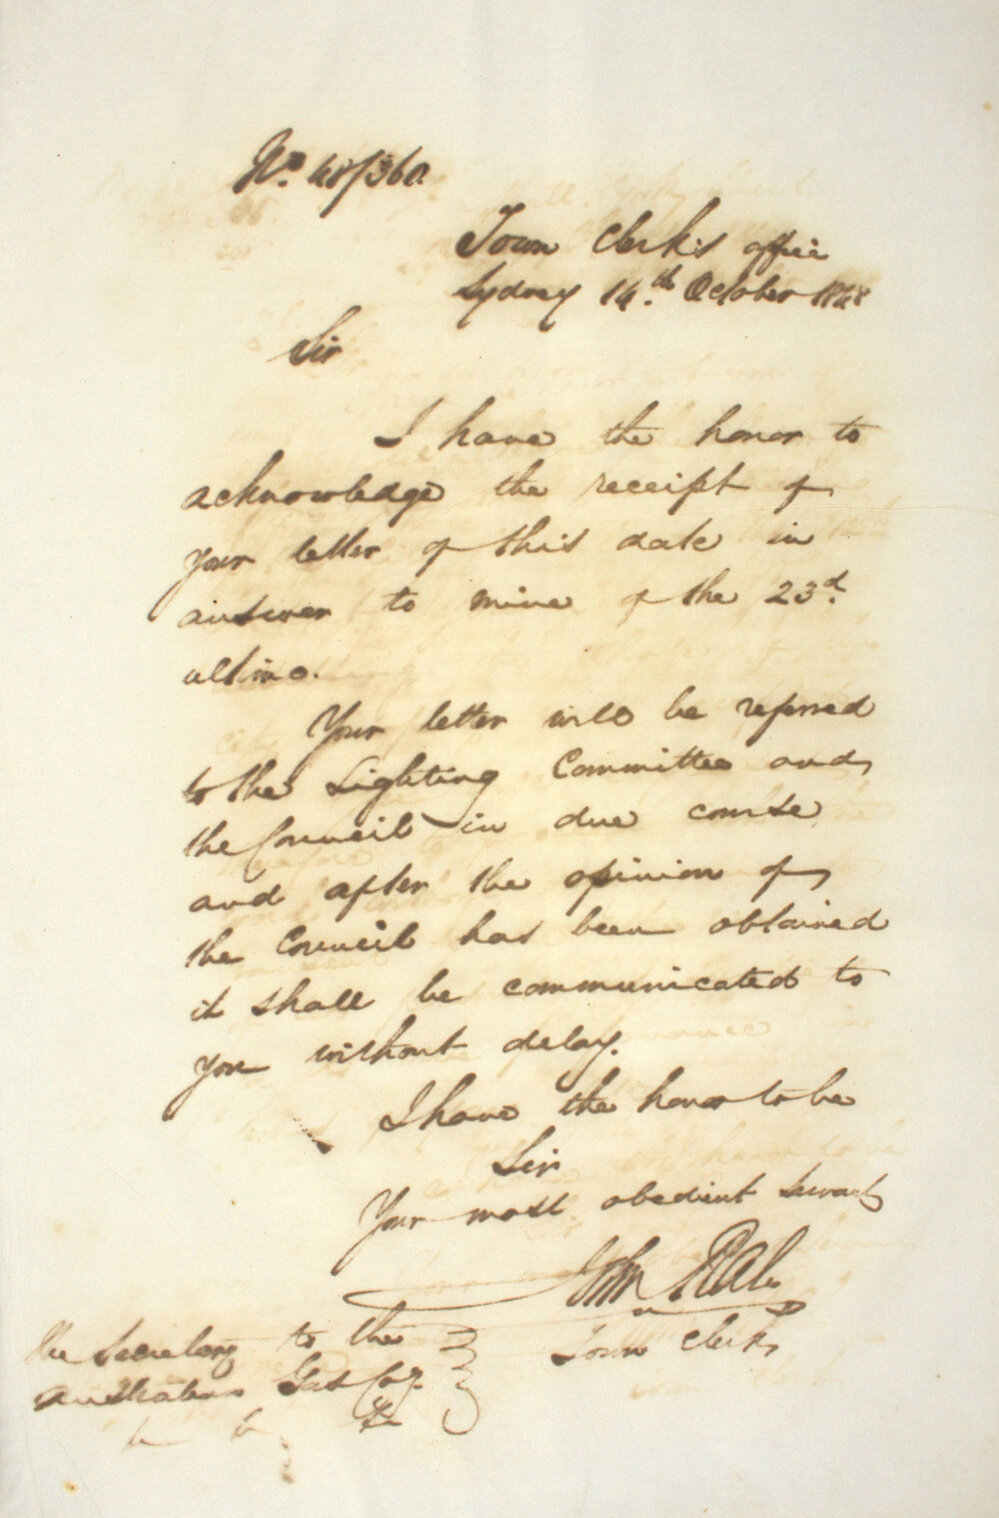 No. 48/360.
Town Clerk's office
Sydney 14th October 1848
Sir
I have the honor to
acknowledge the receipt of
your letter of this date in
answer to mine of the 23d.
ultimo.
Your letter will be referred
to the Lighting Committee and
the Council in due course
and after the opinion of
the Council has been obtained
it shall be communicated to
you without delay.
I have the honor to be
Sir
Your most obedient Servant
John
Town Clerk
The Secretary to the
Australian Gas Coy.